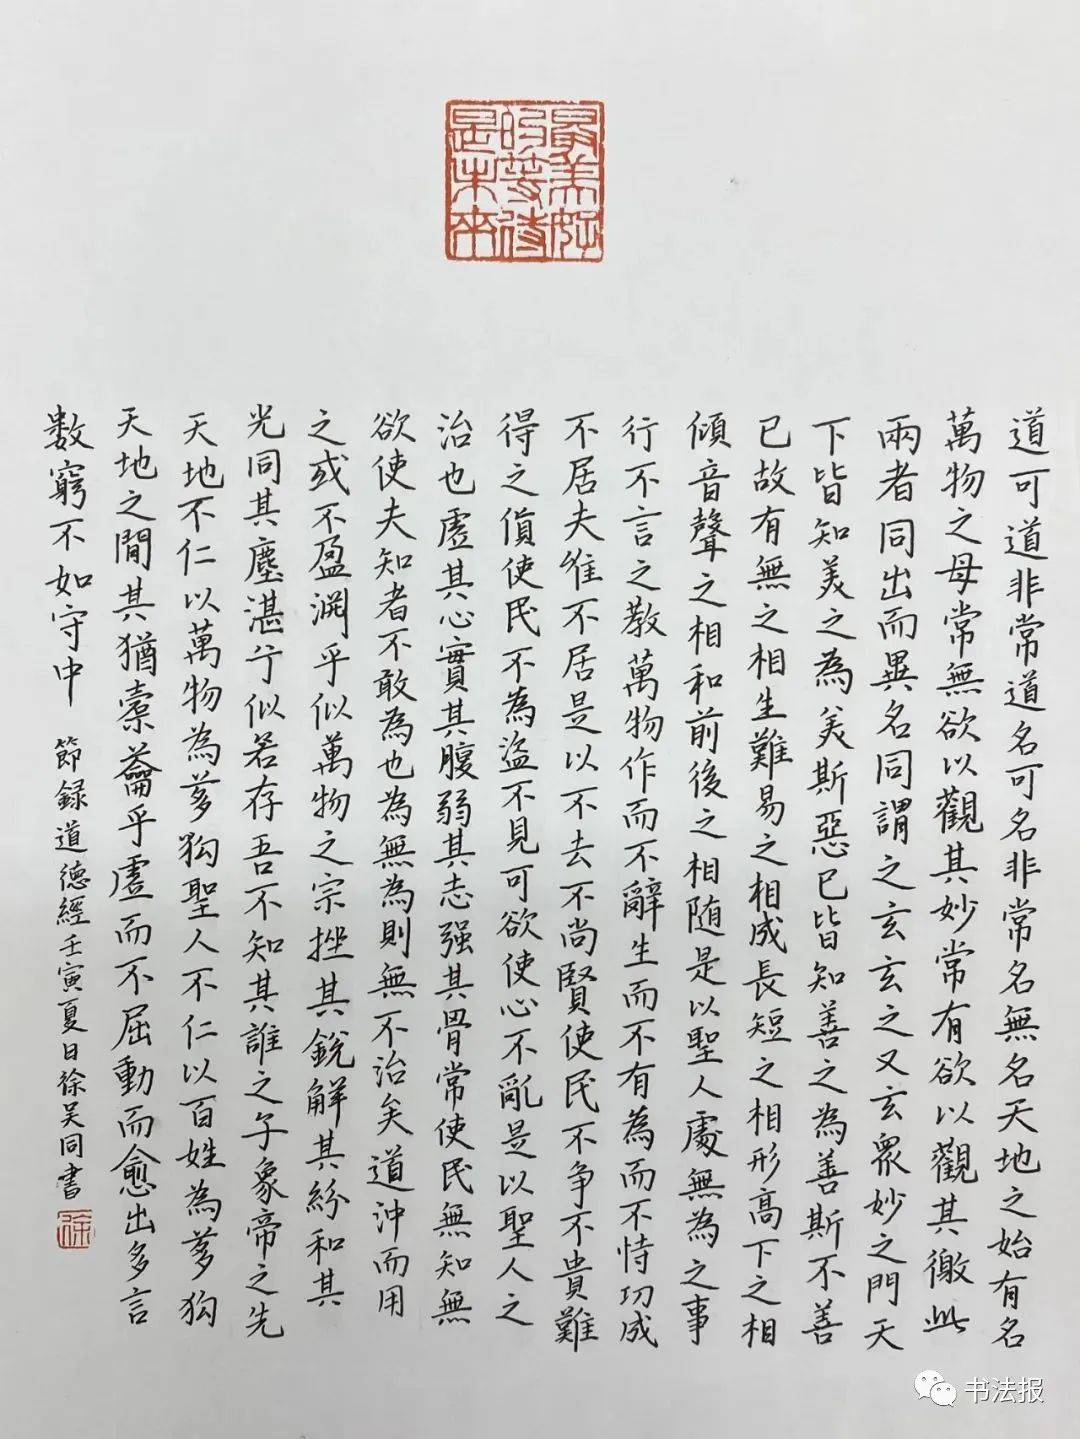 最美好
的等待
是未來
道可道非常道名可名非常名無名天地之始有名
萬物之母常無欲以觀其妙常有欲以觀其徼此
兩者同出而異名同謂之玄玄之又玄衆妙之門天
下皆知美之為美斯惡已皆知善之為善斯不善
已故有無之相生難易之相成長短之相形高下之相
傾音聲之相和前後之相随是以聖人處無為之事
行不言之教萬物作而不辭生而不有為而不恃功成
不居夫維不居是以不去不尚賢使民不争不貴難
得之貨使民不為盗不見可欲使心不亂是以聖人之
治也虚其心實其腹弱其志强其骨常使民無知無
欲使夫知者不敢為也為無為則無不治矣道沖而用
之或不盈淵乎似萬物之宗挫其銳解其紛和其
光同其塵湛兮似若存吾不知其誰之子象帝之先
天地不仁以萬物為芻狗聖人不仁以百姓為芻狗
天地之間其猶橐籥乎虚而不屈動而愈出多言
數窮不如守中 節録道德經壬寅夏日徐吴同書
徐
书法报